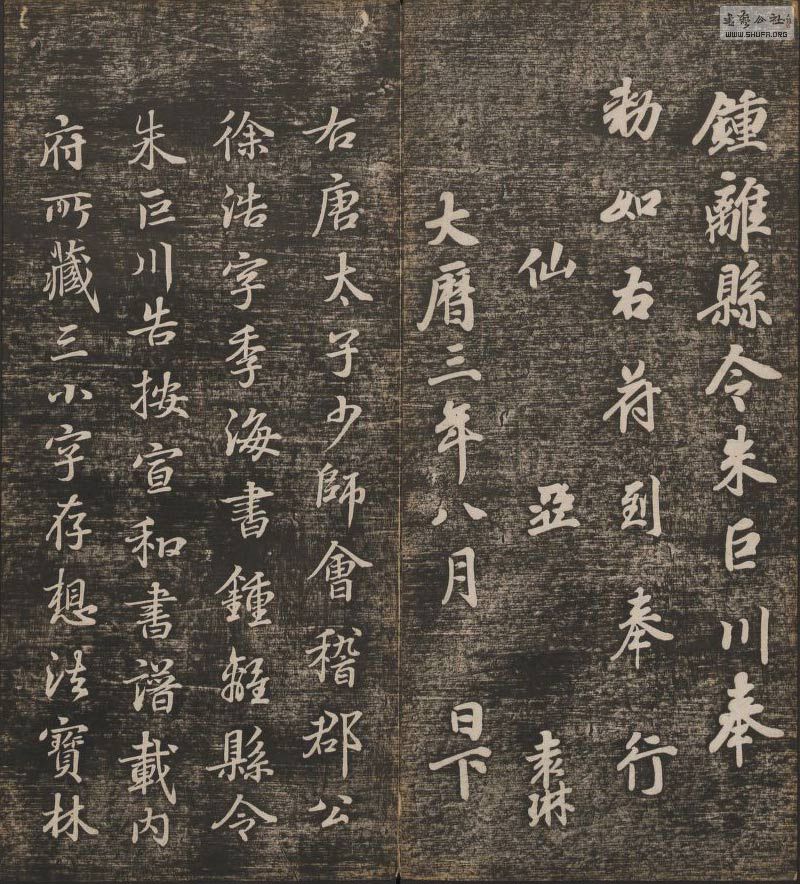 鍾離縣令朱巨川奉
勅如右符到奉行
仙 亞 袁琳
大曆三年八月 日下
右唐太子少師會稽郡公
徐浩字季海書鍾離縣令
朱巨川告按宣和書譜載內
府所藏三小字存想法寶林
WWW.SHUFA.ORG